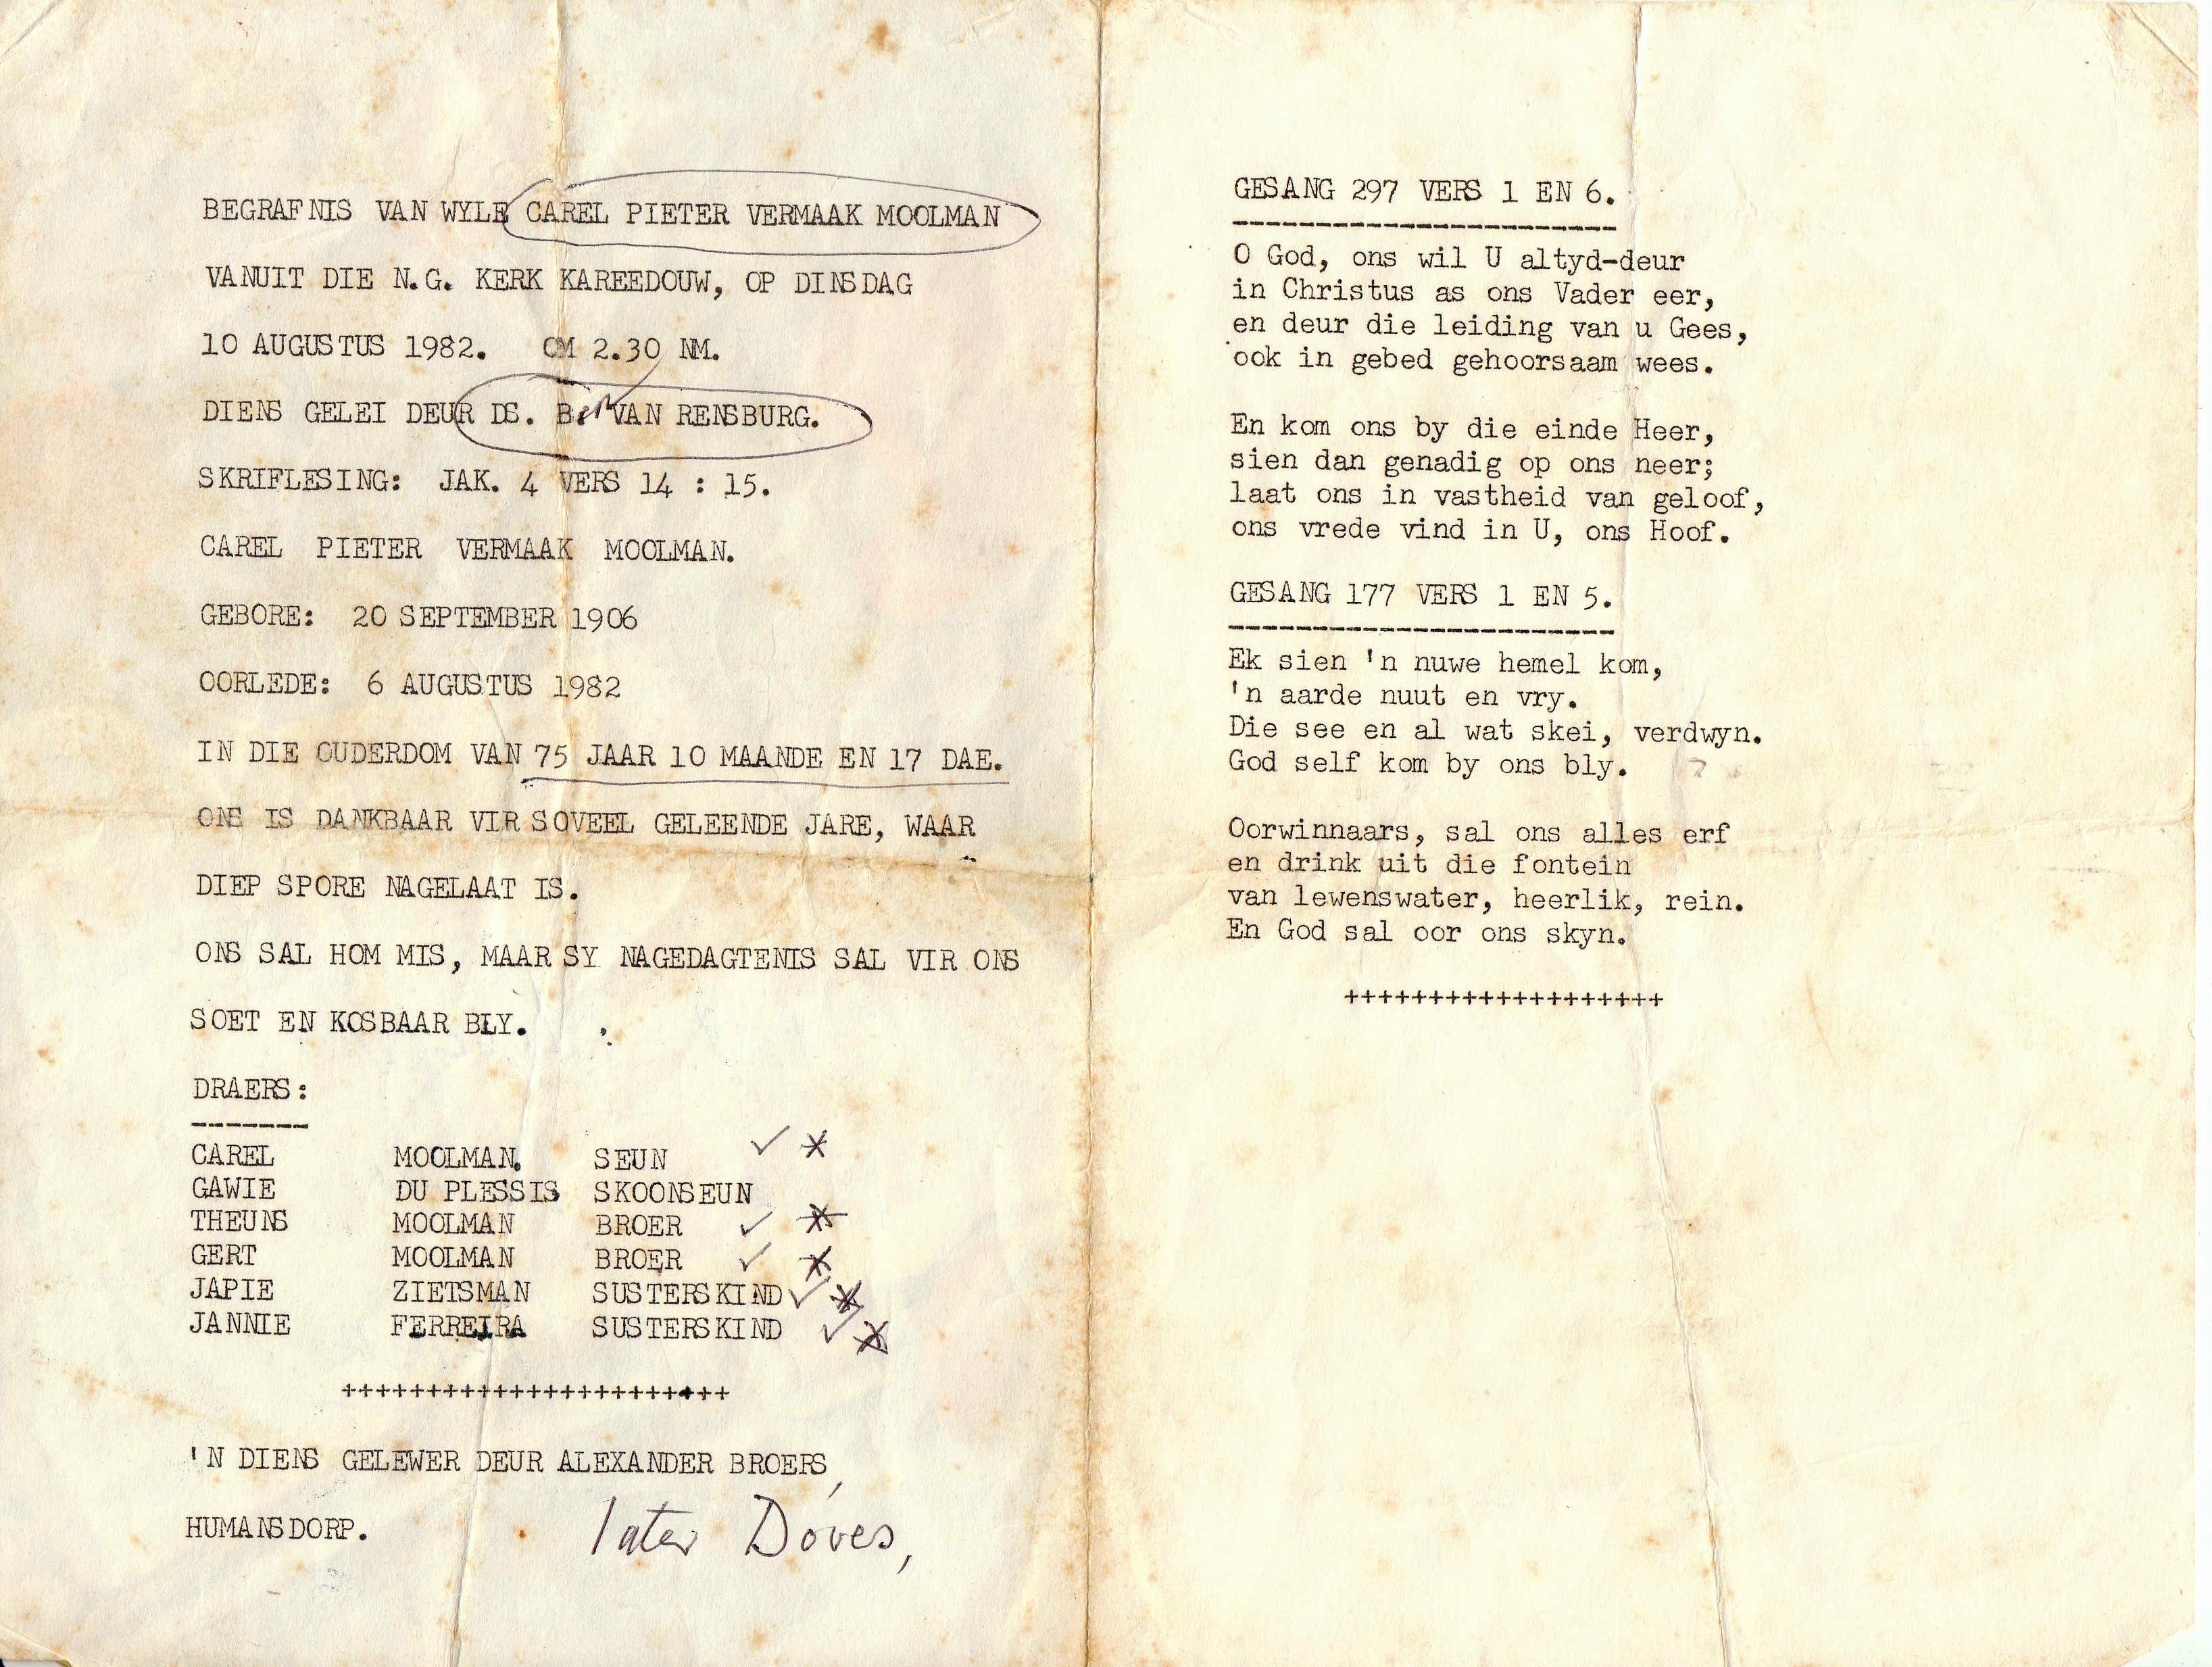 BEGRAFNIS VAN WYLE CAREL PIETER VERMAAK MOOLMAN
VANUIT DIE N.G. KERK KAREEDOUW, OP DINSDAG
10 AUGUSTUS 1982. OM 2.30 NM.
DIENS GELEI DEUR DS. Ben VAN RENSBURG.
SKRIFLESING: JAK. 4 VERS 14 : 15.
CAREL PIETER VERMAAK MOOLMAN.
GEBORE: 20 SEPTEMBER 1906
OORLEDE: 6 AUGUSTUS 1982
IN DIE OUDERDOM VAN 75 JAAR 10 MAANDE EN 17 DAE.
ONS IS DANKBAAR VIR SOVEEL GELEENDE JARE, WAAR
DIEP SPORE NAGELAAT IS.
ONS SAL HOM MIS, MAAR SY NAGEDAGTENIS SAL VIR ONS
SOET EN KOSBAAR BLY.
DRAERS:
CAREL MOOLMAN. SEUN ✓ *
GAWIE DU PLESSIS SKOONSEUN
THEUNS MOOLMAN BROER ✓ *
GERT MOOLMAN BROER ✓ *
JAPIE ZIETSMAN SUSTERSKIND ✓ *
JANNIE FERREIRA SUSTERSKIND ✓ *
+++++++++++++++++++++++
'N DIENS GELEWER DEUR ALEXANDER BROERS,
HUMANSDORP. later Doves,
GESANG 297 VERS 1 EN 6.
O God, ons wil U altyd-deur
in Christus as ons Vader eer,
en deur die leiding van u Gees,
ook in gebed gehoorsaam wees.
En kom ons by die einde Heer,
sien dan genadig op ons neer;
laat ons in vastheid van geloof,
ons vrede vind in U, ons Hoof.
GESANG 177 VERS 1 EN 5.
Ek sien 'n nuwe hemel kom,
'n aarde nuut en vry.
Die see en al wat skei, verdwyn.
God self kom by ons bly.
Oorwinnaars, sal ons alles erf
en drink uit die fontein
van lewenswater, heerlik, rein.
En God sal oor ons skyn.
+++++++++++++++++++